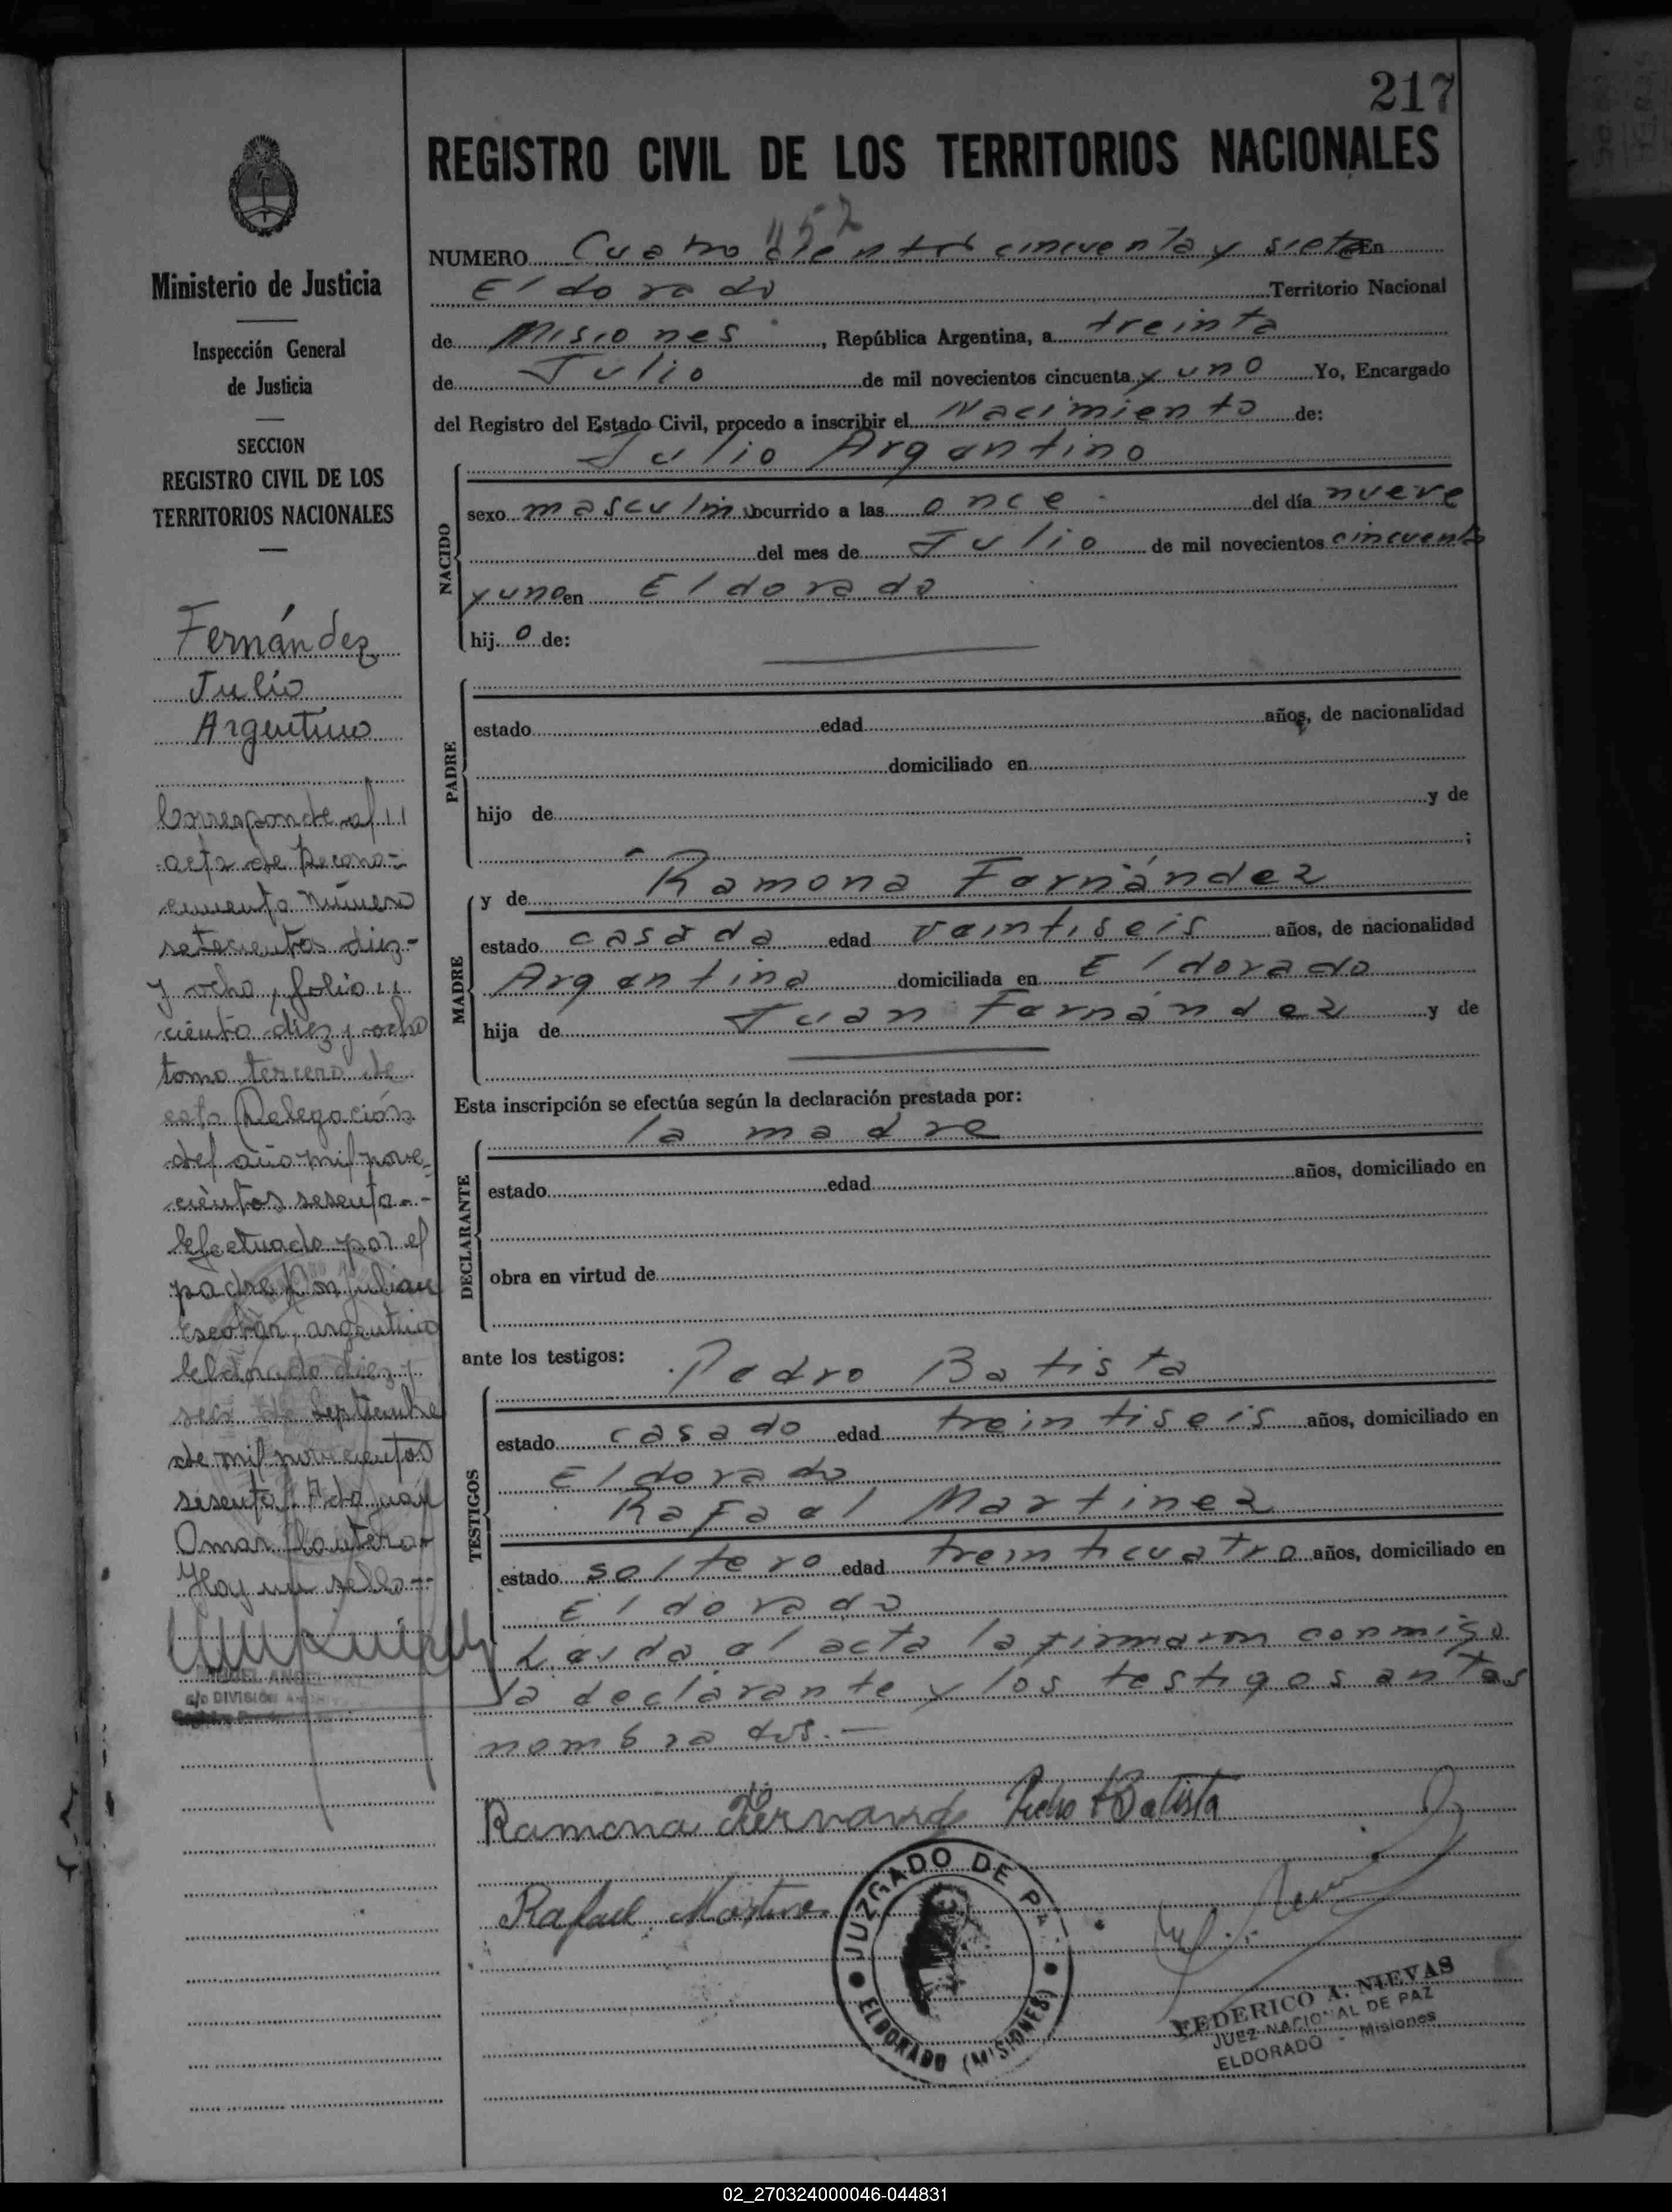 217
REGISTRO CIVIL DE LOS TERRITORIOS NACIONALES
Ministerio de Justicia
Inspección General
de Justicia
SECCION
REGISTRO CIVIL DE LOS
TERRITORIOS NACIONALES
Fernández
Julio
Argentino
Corresponde al
acta de Recono-
cimiento número
setecientos diez-
y ocho, folio
ciento diez y ocho
tomo tercero de
esta Delegación
del año mil nove-
cientos sesenta.-
Efectuado por el
padre Don Julian
Escobar, argentino
Eldorado diez y
seis de Septiembre
de mil novecientos
sesenta
Omar
Hay un sello
MIGUEL ANGEL
a/c DIVISIÓN
457
NUMERO Cuatrocientos cincuenta y siete En
Eldorado Territorio Nacional
de Misiones, República Argentina, a treinta
de Julio de mil novecientos cincuenta y uno Yo, Encargado
del Registro del Estado Civil, procedo a inscribir el Nacimiento de:
Julio Argentino
NACIDO
sexo masculin ocurrido a las once del día nueve
del mes de Julio de mil novecientos cincuenta
y uno en Eldorado
hij o de:
PADRE
estado edad años, de nacionalidad
domiciliado en
hijo de y de
;
MADRE
y de Ramona Fernández
estado casada edad veintiseis años, de nacionalidad
Argentina domiciliada en Eldorado
hija de Juan Fernández y de
Esta inscripción se efectúa según la declaración prestada por:
la madre
DECLARANTE
estado edad años, domiciliado en
obra en virtud de
ante los testigos: Pedro Batista
TESTIGOS
estado casado edad treintiseis años, domiciliado en
Eldorado
Rafael Martinez
estado soltero edad treinticuatro años, domiciliado en
Eldorado
Leida el acta la firmaron conmigo
la declarante y los testigos antes
nombrados.—
Ramona Fernande Pedro Batista
Rafael Martine
JUZGADO DE PAZ
ELDORADO (MISIONES)
FEDERICO A. NIEVAS
JUEZ NACIONAL DE PAZ
ELDORADO - Misiones
02_270324000046-044831